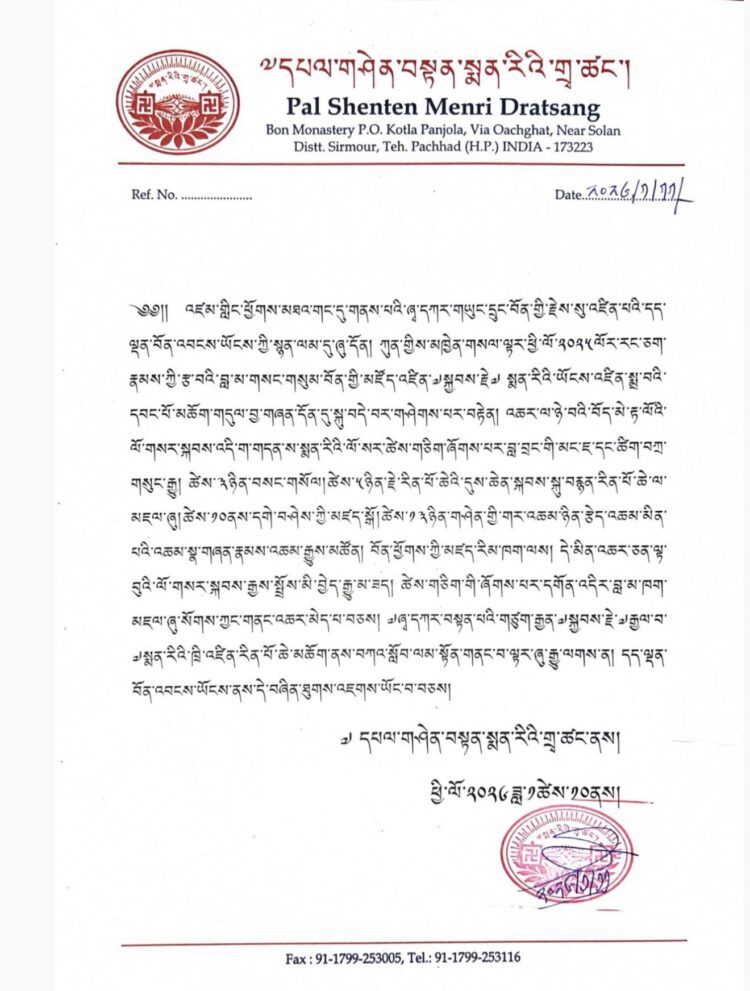 ༧དཔལ་གཤེན་བསྟན་སྨན་རིའི་གྲྭ་ཚང་།
Pal Shenten Menri Dratsang
Bon Monastery P.O. Kotla Panjola, Via Oachghat, Near Solan
Distt. Sirmour, Teh. Pachhad (H.P.) INDIA - 173223
Ref. No. ......................
Date ༢༠༢༦/༡/༡༡
༄༅།། འཛམ་གླིང་ཕྱོགས་མཐའ་གང་དུ་གནས་པའི་ཞྭ་དཀར་གཡུང་དྲུང་བོན་གྱི་རྗེས་སུ་འཛིན་པའི་དད་
ལྡན་བོན་འབངས་ཡོངས་ཀྱི་སྙན་ལམ་དུ་ཞུ་དོན། ཀུན་གྱིས་མཁྱེན་གསལ་ལྟར་ཕྱི་ལོ་༢༠༢༥ལོར་རང་ཅག་
རྣམས་ཀྱི་རྩ་བའི་བླ་མ་གསང་གསུམ་བོན་གྱི་མཛོད་འཛིན་༧སྐྱབས་རྗེ་༧ སྨན་རིའི་ཡོངས་འཛིན་སྨྲ་བའི་
དབང་པོ་མཆོག་གདུལ་བྱ་གཞན་དོན་དུ་སྐུ་བདེ་བར་གཤེགས་པར་བརྟེན། འཆར་ལ་ཉེ་བའི་བོད་མེ་རྟ་ལོའི་
ལོ་གསར་སྐབས་འདི་ག་གདན་ས་སྨན་རིའི་ལོ་སར་ཚེས་གཅིག་ཞོགས་པར་བླ་བྲང་གི་མང་ཇ་དང་ཚིག་བཀྲ་
གསུང་རྒྱུ། ཚེས་༣ཉིན་བསང་གསོལ། ཚེས་༥ཉིན་རྗེ་རིན་པོ་ཆེའི་དུས་ཆེན་སྐབས་སྐུ་བརྙན་རིན་པོ་ཆེ་ལ་
མཇལ་ཞུ། ཚེས་༡༠ནས་དགེ་བཤེས་ཀྱི་མཛད་སྒོ། ཚེས་༡༣ཉིན་གཤེན་གྱི་གར་འཆམ་ཉིན་རྩེད་འཆམ་མིན་
པའི་འཆམ་སྣ་གཞན་རྣམས་འཆམ་རྒྱུས་མཚོན། བོན་ཕྱོགས་ཀྱི་མཛད་རིམ་ཁག་ལས། དེ་མིན་འཆར་ཅན་ལྟ་
བུའི་ལོ་གསར་སྐབས་རྒྱས་སྤྲོས་མི་བྱེད་རྒྱུ་མ་ཟད། ཚེས་གཅིག་གི་ཞོགས་པར་དགོན་འདིར་བླ་མ་ཁག་
མཇལ་ཞུ་སོགས་ཀྱང་གནང་འཆར་མེད་པ་བཅས། ༧ཞྭ་དཀར་བསྟན་པའི་གཙུག་རྒྱན་༧སྐྱབས་རྗེ་༧རྒྱལ་བ་
༧སྨན་རིའི་ཁྲི་འཛིན་རིན་པོ་ཆེ་མཆོག་ནས་བཀའ་སློབ་ལམ་སྟོན་གནང་བ་ལྟར་ཞུ་རྒྱུ་ལགས་ན། དད་ལྡན་
བོན་འབངས་ཡོངས་ནས་དེ་བཞིན་ཐུགས་འཇགས་ཡོང་བ་བཅས།
༧ དཔལ་གཤེན་བསྟན་སྨན་རིའི་གྲྭ་ཚང་ནས།
ཕྱི་ལོ་༢༠༢༦ ཟླ་༡ཚེས་༡༠ནས།
༢༠༢༦/༡/༡༡
Fax : 91-1799-253005, Tel.: 91-1799-253116